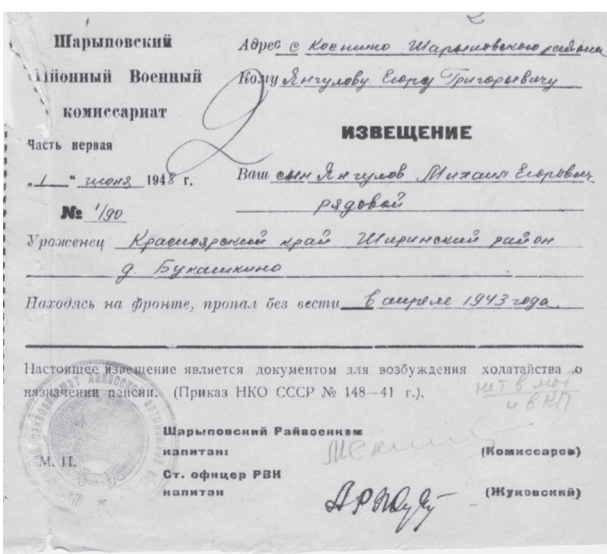 Шарыповский
Районный Военный
комиссариат
Часть первая
„1" июня 1948 г.
№ 1/90
Адрес с Косшино Шарыповского района
Кому Янгулову Егору Григорьевичу
ИЗВЕЩЕНИЕ
Ваш сын Янгулов Михаил Егорович
рядовой
Уроженец Красноярский край Ширинский район
д. Букашкино
Находясь на фронте, пропал без вести в апреле 1943 года
Настоящее извещение является документом для возбуждения холатайства о
назначении пенсии. (Приказ НКО СССР № 148—41 г.).
нет в
и в КП
Шарыповский Райвоенком
капитан:
(Комиссаров)
М. П.
Ст. офицер РВК
капитан
(Жуковский)